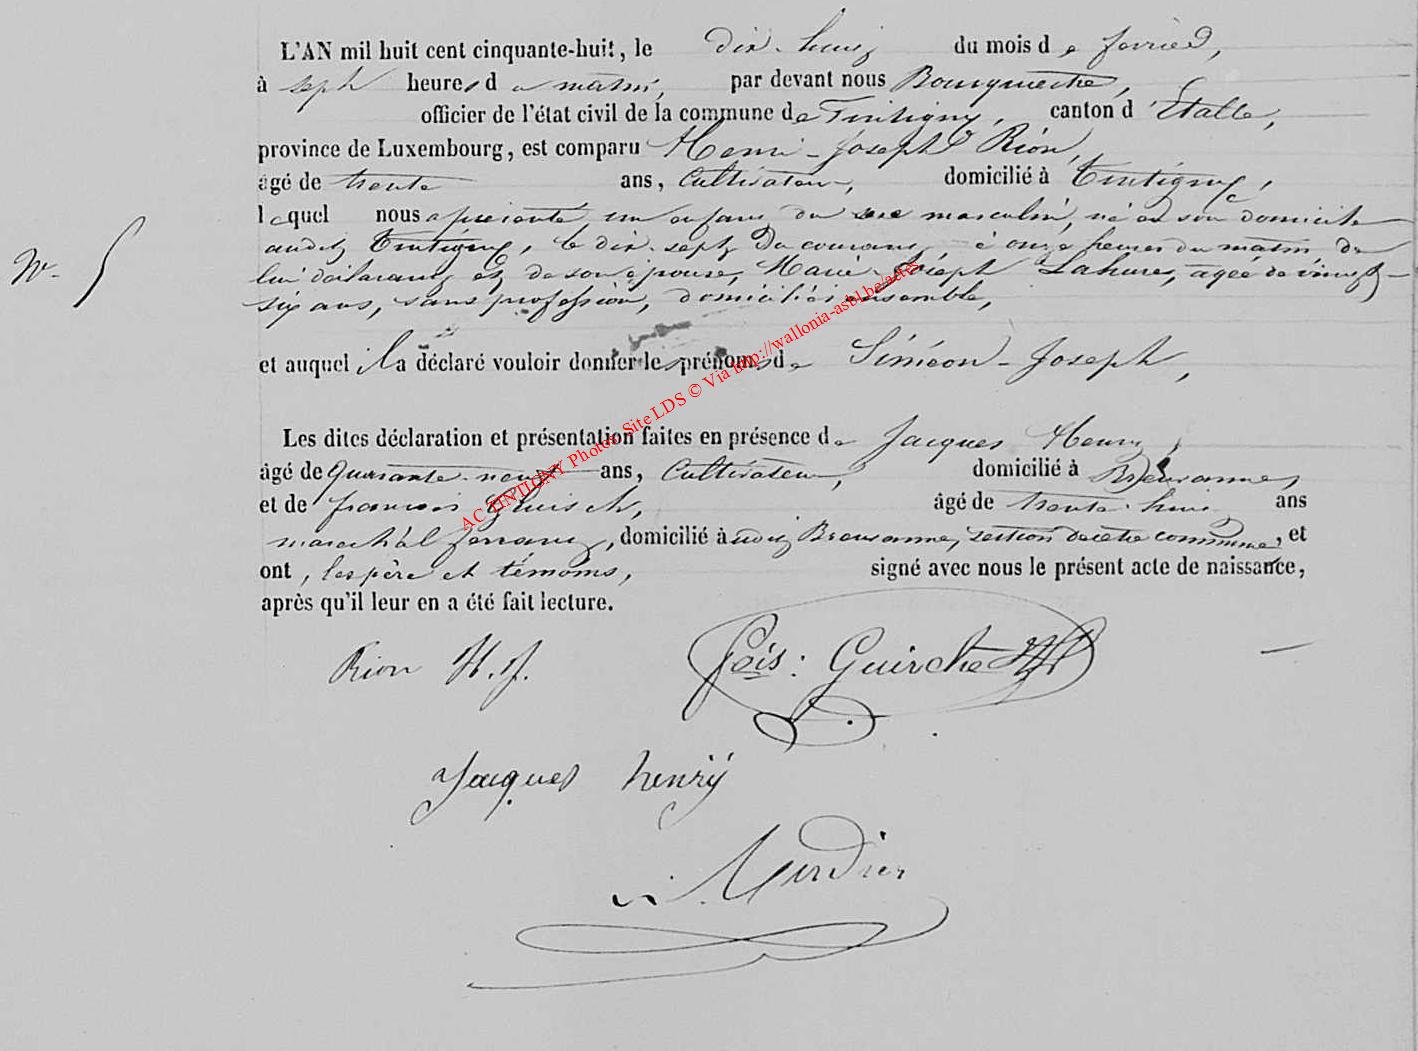 L'AN mil huit cent cinquante-huit, le dix-huit du mois de février,
à sept heures du matin, par devant nous Bourguemestre,
officier de l'état civil de la commune de Tintigny, canton d'Etalle,
province de Luxembourg, est comparu Henri-Joseph Rion,
âgé de trente ans, Cultivateur, domicilié à Tintigny,
lequel nous a présenté un enfant du sexe masculin, né en son domicile
audit Tintigny, le dix-sept du courant à onze heures du matin, de
lui déclarant et de son épouse, Marie-Joseph Lahure, agée de vingt-
N° 5
six ans, sans profession, domiciliés ensemble,
et auquel il a déclaré vouloir donner les prénoms de Siméon-Joseph,
Les dites déclaration et présentation faites en présence de Jacques Henry,
âgé de quarante-neuf ans, Cultivateur, domicilié à Breuvanne,
et de françois âgé de trente-huit ans
maréchal ferrant, domicilié à audit Breuvanne, section de cette commune, et
ont, les père et témoins, signé avec nous le présent acte de naissance,
après qu'il leur en a été fait lecture.
Rion H. J. fçois: Guirche
Jacques henrÿ
AC TINTIGNY Photos Site LDS © Via http://wallonia-asbl.be/actes